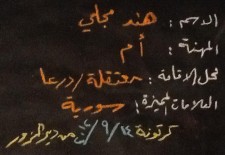 الاسم : هند مجلي
المهنة : أم
محل الاقامة : معتقلة / درعا
العلامات المميزة : سورية
كرتونة ١٤ / ٩ / من دير الزور